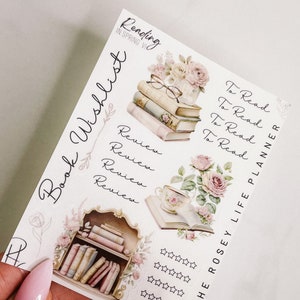 Reading
To Read
To Read
To Read
To Read
Book Wishlist
Review
Review
Review
Review
E ROSEY LIFE PLANNER